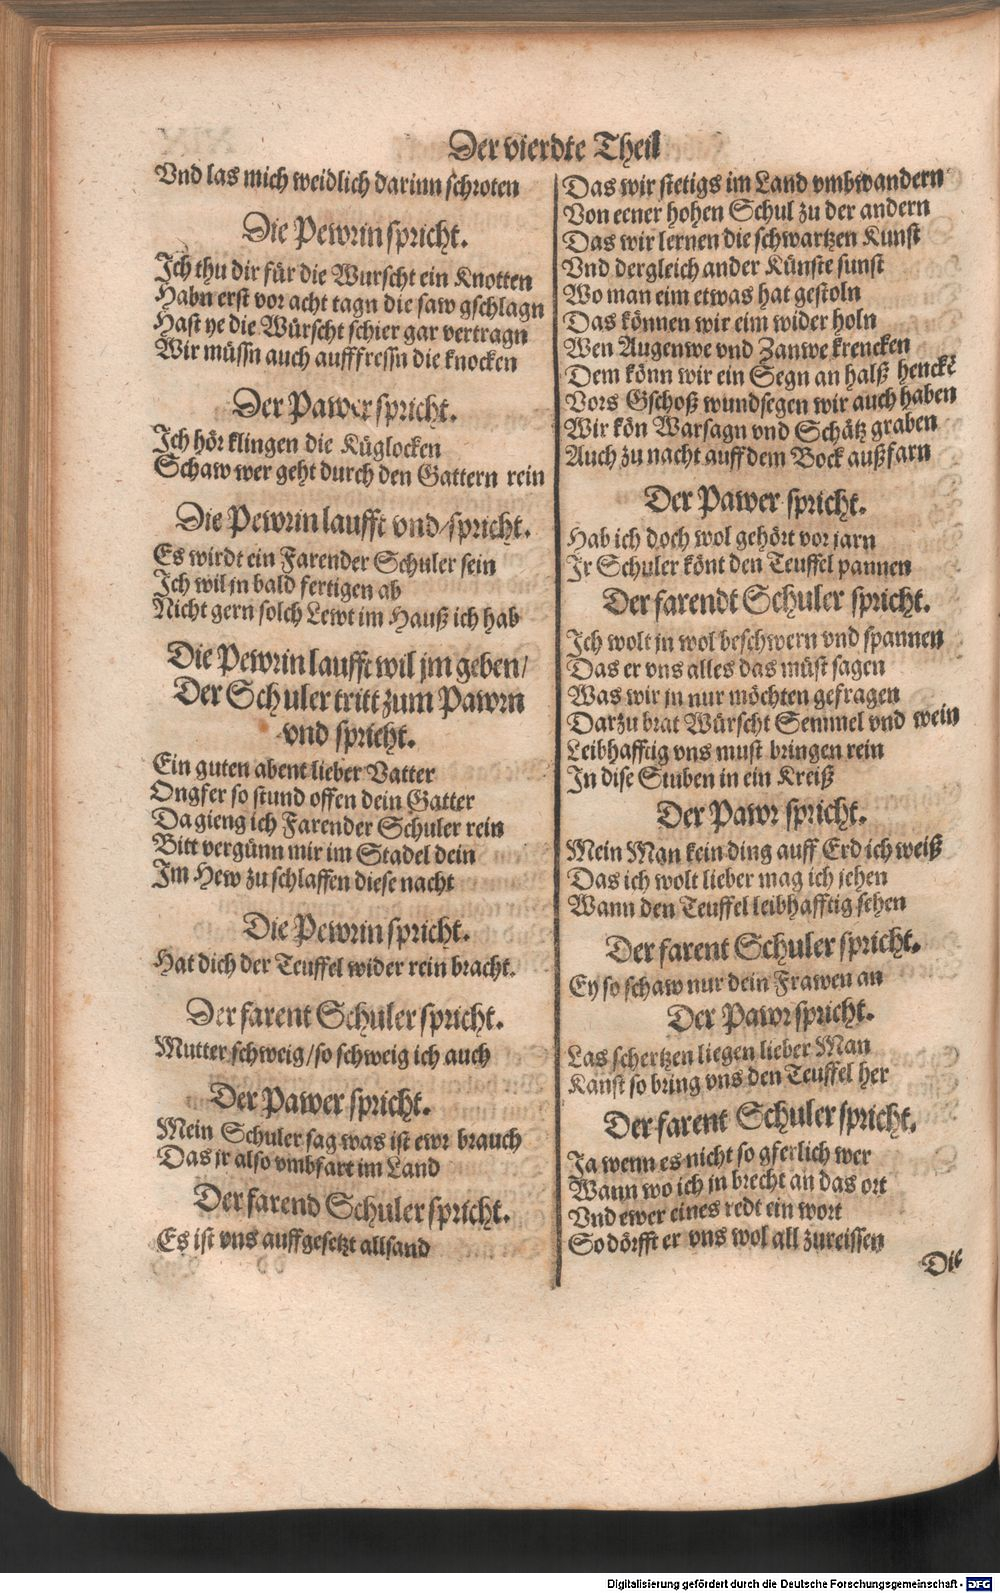 Der vierdte Theil
Vnd las mich weidlich darinn schroten
Die Pewrin spricht.
Ich thu dir für die Wurscht ein Knotten
Habn erst vor acht tagn die saw gschlagn
Hast ye die Würscht schier gar vertragn
Wir müssn auch aufffressn die knocken
Der Pawer spricht.
Ich hör klingen die Küglocken
Schaw wer geht durch den Gattern rein
Die Pewrin laufft vnd spricht.
Es wirdt ein Farender Schuler sein
Ich wil jn bald fertigen ab
Nicht gern solch Lewt im Hauß ich hab
Die Pewrin laufft wil jm geben/
Der Schuler tritt zum Pawrn
vnd spricht.
Ein guten abent lieber Vatter
Ongfer so stund offen dein Gatter
Da gieng ich Farender Schuler rein
Bitt vergünn mir im Stadel dein
Im Hew zu schlaffen diese nacht
Die Pewrin spricht.
Hat dich der Teuffel wider rein bracht.
Der farent Schuler spricht.
Mutter schweig/so schweig ich auch
Der Pawer spricht.
Mein Schuler sag was ist ewr brauch
Das jr also vmbfart im Land
Der farend Schuler spricht.
Es ist vns auffgesetzt allsand
Das wir stetigs im Land vmbwandern
Von eener hohen Schul zu der andern
Das wir lernen die schwartzen Kunst
Vnd dergleich ander Künste sunst
Wo man eim etwas hat gestoln
Das können wir eim wider holn
Wen Augenwe vnd Zanwe krencken
Dem könn wir ein Segn an halß henckē
Vors Gschoß wundsegen wir auch haben
Wir kön Warsagn vnd Schätz graben
Auch zu nacht auff dem Bock außfarn
Der Pawer spricht.
Hab ich doch wol gehört vor jarn
Jr Schuler könt den Teuffel pannen
Der farendt Schuler spricht.
Ich wolt jn wol beschwern vnd spannen
Das er vns alles das müst sagen
Was wir jn nur möchten gefragen
Darzu brat Würscht Semmel vnd wein
Leibhafftig vns must bringen rein
In dise Stuben in ein Kreiß
Der Pawr spricht.
Mein Man kein ding auff Erd ich weiß
Das ich wolt lieber mag ich jehen
Wann den Teuffel leibhafftig sehen
Der farent Schuler spricht.
Ey so schaw nur dein Frawen an
Der Pawr spricht.
Las schertzen liegen lieber Man
Kanst so bring vns den Teuffel her
Der farent Schuler spricht.
Ja wenn es nicht so gferlich wer
Wann wo ich jn brecht an das ort
Vnd ewer eines redt ein wort
So dörfft er vns wol all zureissen
Die
Digitalisierung gefördert durch die Deutsche Forschungsgemeinschaft - DFG